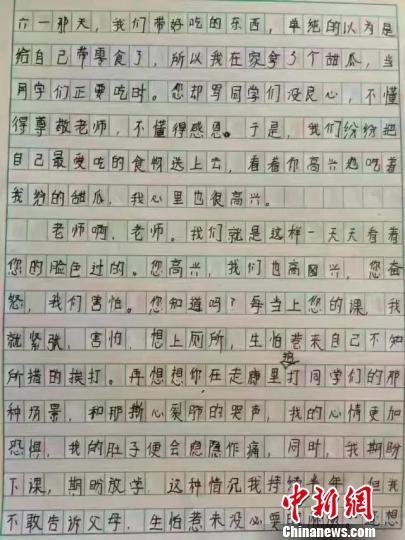 六一那天，我们带好吃的东西，单纯的以为是
给自己带零食了，所以我在家拿了个甜瓜，当
同学们正要吃时。您却骂同学们没良心，不懂
得尊敬老师，不懂得感恩。于是，我们纷纷把
自己最爱吃的食物送上去，看着你高兴地吃着
我给的甜瓜，我心里也很高兴。
老师啊，老师。我们就是这样一天天看着
您的脸色过的。您高兴，我们也高兴，您奋
怒，我们害怕。您知道吗？每当上您的课，我
就紧张，害怕，想上厕所，生怕惹来自己不知
所措的挨打。再想想你在走廊里打同学们的那
种场景，和那撕心裂肺的哭声，我的心情更加
恐惧，我的肚子便会隐隐作痛，同时，我期盼
下课，期盼放学，这种情况我持续半年，但我
不敢告诉父母，生怕惹来没必要 想
中新网